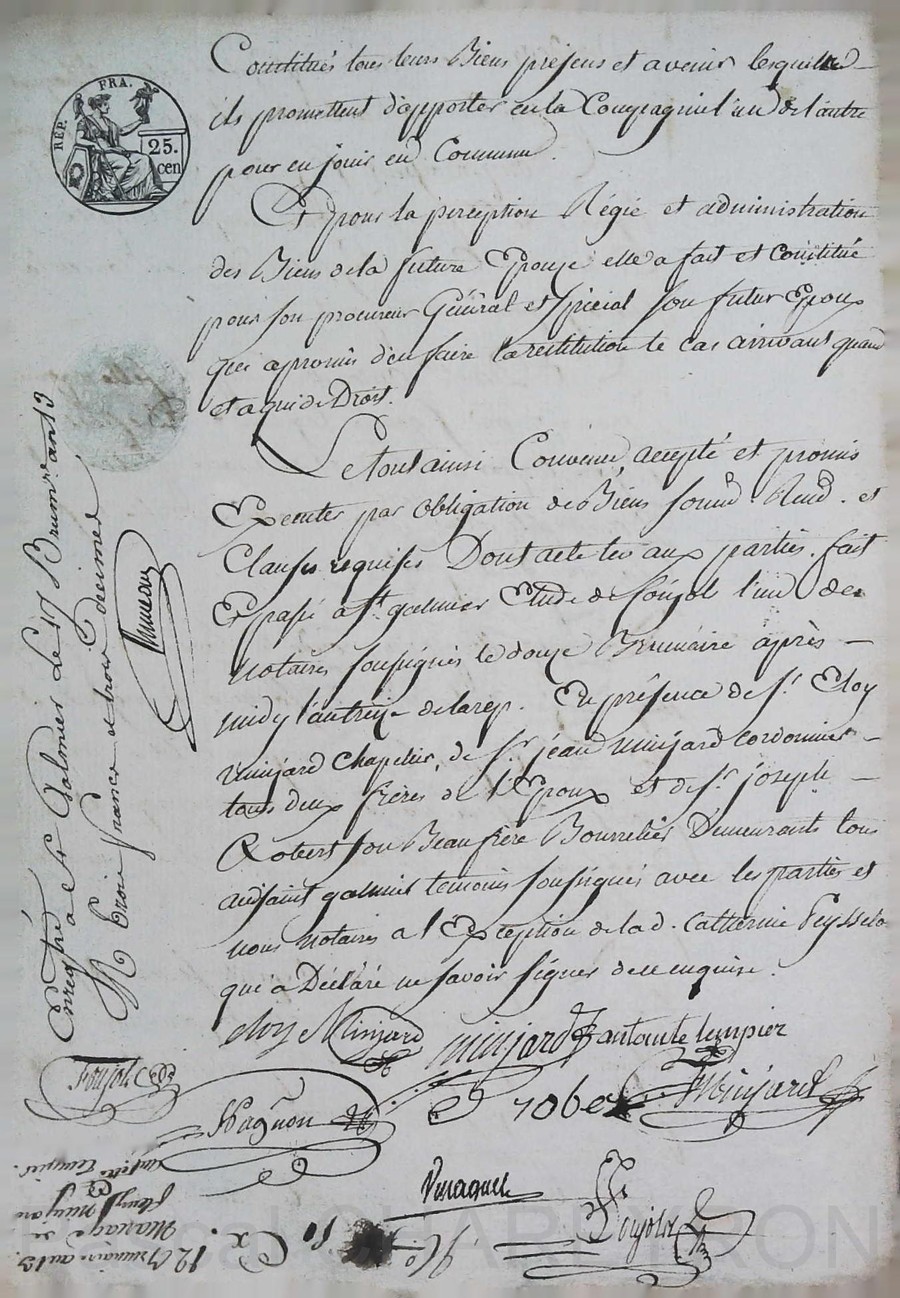 Constitués tous leurs Biens présens et avenir lesquels
ils promettent d'apporter en la Compagnie l'un de l'autre
pour en jouir en Commun.
Et pour la perception Régie et administration
des Biens de la future Epouse elle a fait et Constitué
pour son procureur Général et Spécial son futur Epoux
qui a promis d'en faire la restitution le cas arrivant quand
et a qui de Droit.
Le tout ainsi Convenu accepté et promis
Executer par obligation de Biens soumd Rend. et
Clauses requises Dont acte leu aux parties. fait
Et passé a St. galmier Etude de foujols l'un des
Notaires soussignés le douze Brumaire après
midy l'an treize de la rep. En présence de Sr. Eloy
minjard Chapelier, de Sr. jean minjard Cordonnier
tous deux frères de l'Epoux et de Sr. joseph
Robert son Beaufrère Bourrelier Demeurants tous
audsaint galmier temoins soussignés avec les parties et
nous Notaires a l'Exception de la d. Catherine Peysselo
qui a Déclaré ne savoir signer de ce enquise.
eloy Minjard minjard antoinete
Foujols Hugnon robert Minjard
foujols
REP. FRA.
25.
cen
Enregtré a St Galmier le 17 Brumre an 13
R trois francs et trois Decimes
12 Brumaire an 13
Mariage de
fleury minjard
&
antoinette